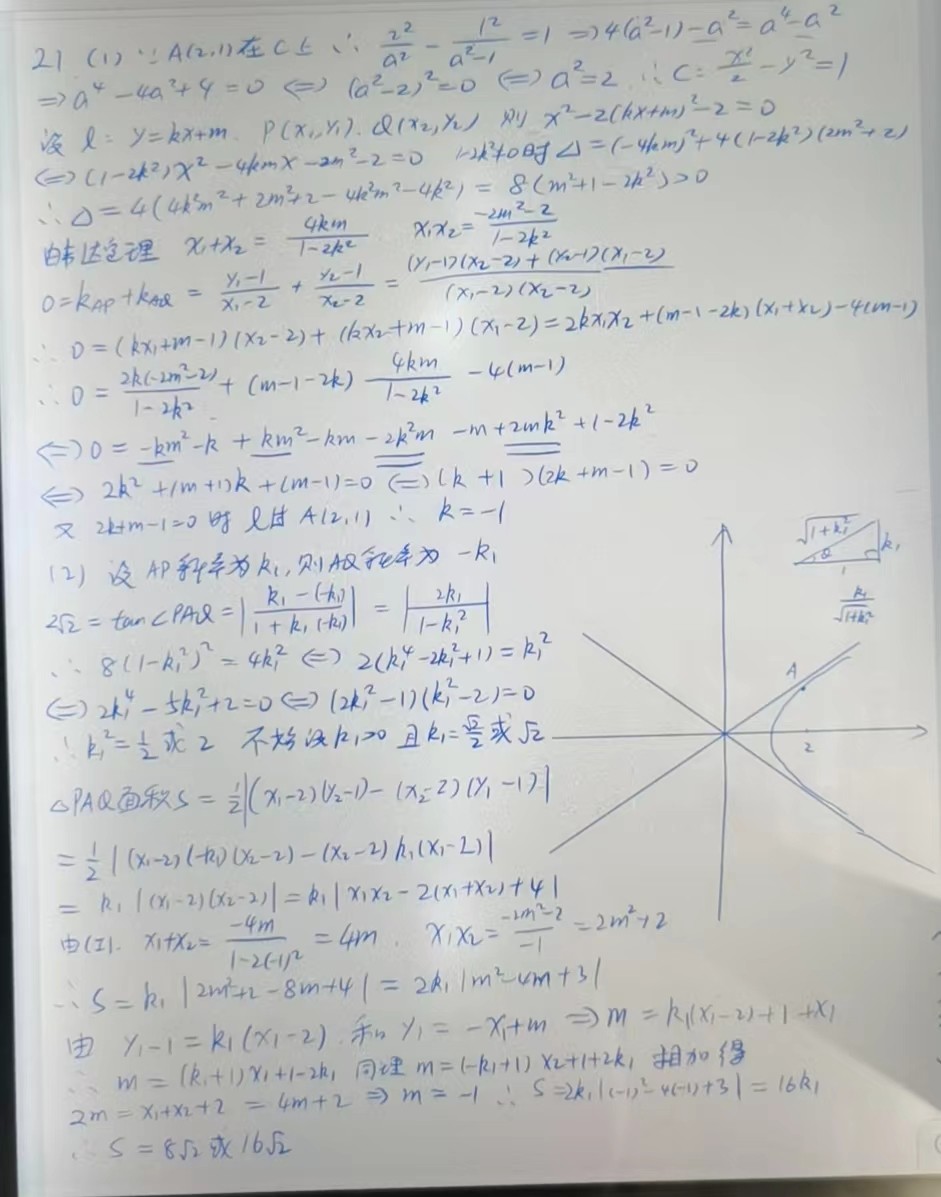 21 (1) ∵ A(2,1)在C上 ∴ 2²/a² - 1²/(a²-1) = 1 ⇒ 4(a²-1)-a² = a⁴-a²
⇒ a⁴-4a²+4=0 ⇔ (a²-2)²=0 ⇔ a²=2 ∴ C: x²/2 - y²=1
设 l: y=kx+m. P(x₁,y₁). Q(x₂,y₂) 则 x²-2(kx+m)²-2=0
⇔ (1-2k²)x²-4kmx-2m²-2=0 1-2k²≠0时 Δ=(-4km)²+4(1-2k²)(2m²+2)
∴ Δ=4(4k²m²+2m²+2-4k²m²-4k²) = 8(m²+1-2k²)>0
由韦达定理 x₁+x₂ = 4km/(1-2k²) x₁x₂ = (-2m²-2)/(1-2k²)
0=k_AP+k_AQ = (y₁-1)/(x₁-2) + (y₂-1)/(x₂-2) = ((y₁-1)(x₂-2)+(y₂-1)(x₁-2))/((x₁-2)(x₂-2))
∴ 0=(kx₁+m-1)(x₂-2)+(kx₂+m-1)(x₁-2)=2kx₁x₂+(m-1-2k)(x₁+x₂)-4(m-1)
∴ 0 = 2k(-2m²-2)/(1-2k²) + (m-1-2k) 4km/(1-2k²) - 4(m-1)
⇔ 0 = -km²-k+km²-km-2k²m-m+2mk²+1-2k²
⇔ 2k²+(m+1)k+(m-1)=0 ⇔ (k+1)(2k+m-1)=0
又 2k+m-1=0 时 l过A(2,1) ∴ k=-1
(2) 设AP斜率为k₁,则AQ斜率为 -k₁
2√2 = tan∠PAQ = |(k₁-(-k₁))/(1+k₁(-k₁))| = |2k₁/(1-k₁²)|
∴ 8(1-k₁²)² = 4k₁² ⇔ 2(k₁⁴-2k₁²+1)=k₁²
⇔ 2k₁⁴-5k₁²+2=0 ⇔ (2k₁²-1)(k₁²-2)=0
∴ k₁²=1/2 或 2 不妨设k₁>0 且k₁=√2/2 或 √2
△PAQ面积S = 1/2|(x₁-2)(y₂-1)-(x₂-2)(y₁-1)|
= 1/2|(x₁-2)(-k₁)(x₂-2)-(x₂-2)k₁(x₁-2)|
= k₁|(x₁-2)(x₂-2)| = k₁|x₁x₂-2(x₁+x₂)+4|
由(1). x₁+x₂ = -4m/(1-2(-1)²) = 4m. x₁x₂ = (-2m²-2)/-1 = 2m²+2
∴ S = k₁|2m²+2-8m+4| = 2k₁|m²-4m+3|
由 y₁-1=k₁(x₁-2). 和 y₁=-x₁+m ⇒ m=k₁(x₁-2)+1+x₁
∴ m=(k₁+1)x₁+1-2k₁ 同理 m=(-k₁+1)x₂+1+2k₁ 相加得
2m=x₁+x₂+2 = 4m+2 ⇒ m=-1 ∴ S=2k₁|(-1)²-4(-1)+3|=16k₁
∴ S=8√2或16√2
√(1+k₁²)
k₁
θ
1
k₁/√(1+k₁²)
A
2